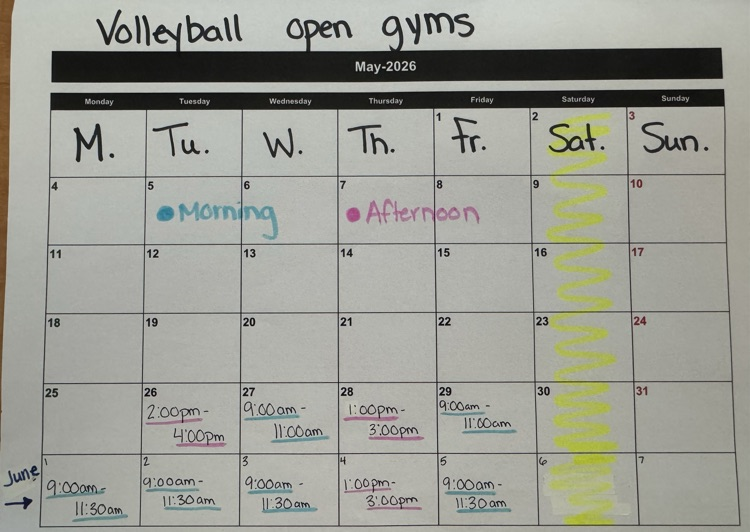 Volleyball open gyms
May-2026
Monday Tuesday Wednesday Thursday Friday Saturday Sunday
1 2 3
M. Tu. W. Th. Fr. Sat. Sun.
4 5 6 7 8 9 10
Morning Afternoon
11 12 13 14 15 16 17
18 19 20 21 22 23 24
25 26 27 28 29 30 31
2:00pm- 9:00am- 1:00pm- 9:00am-
4:00pm 11:00am 3:00pm 11:00am
June 1 2 3 4 5 6 7
9:00am- 9:00am- 9:00am- 1:00pm- 9:00am-
11:30am 11:30am 11:30am 3:00pm 11:30am